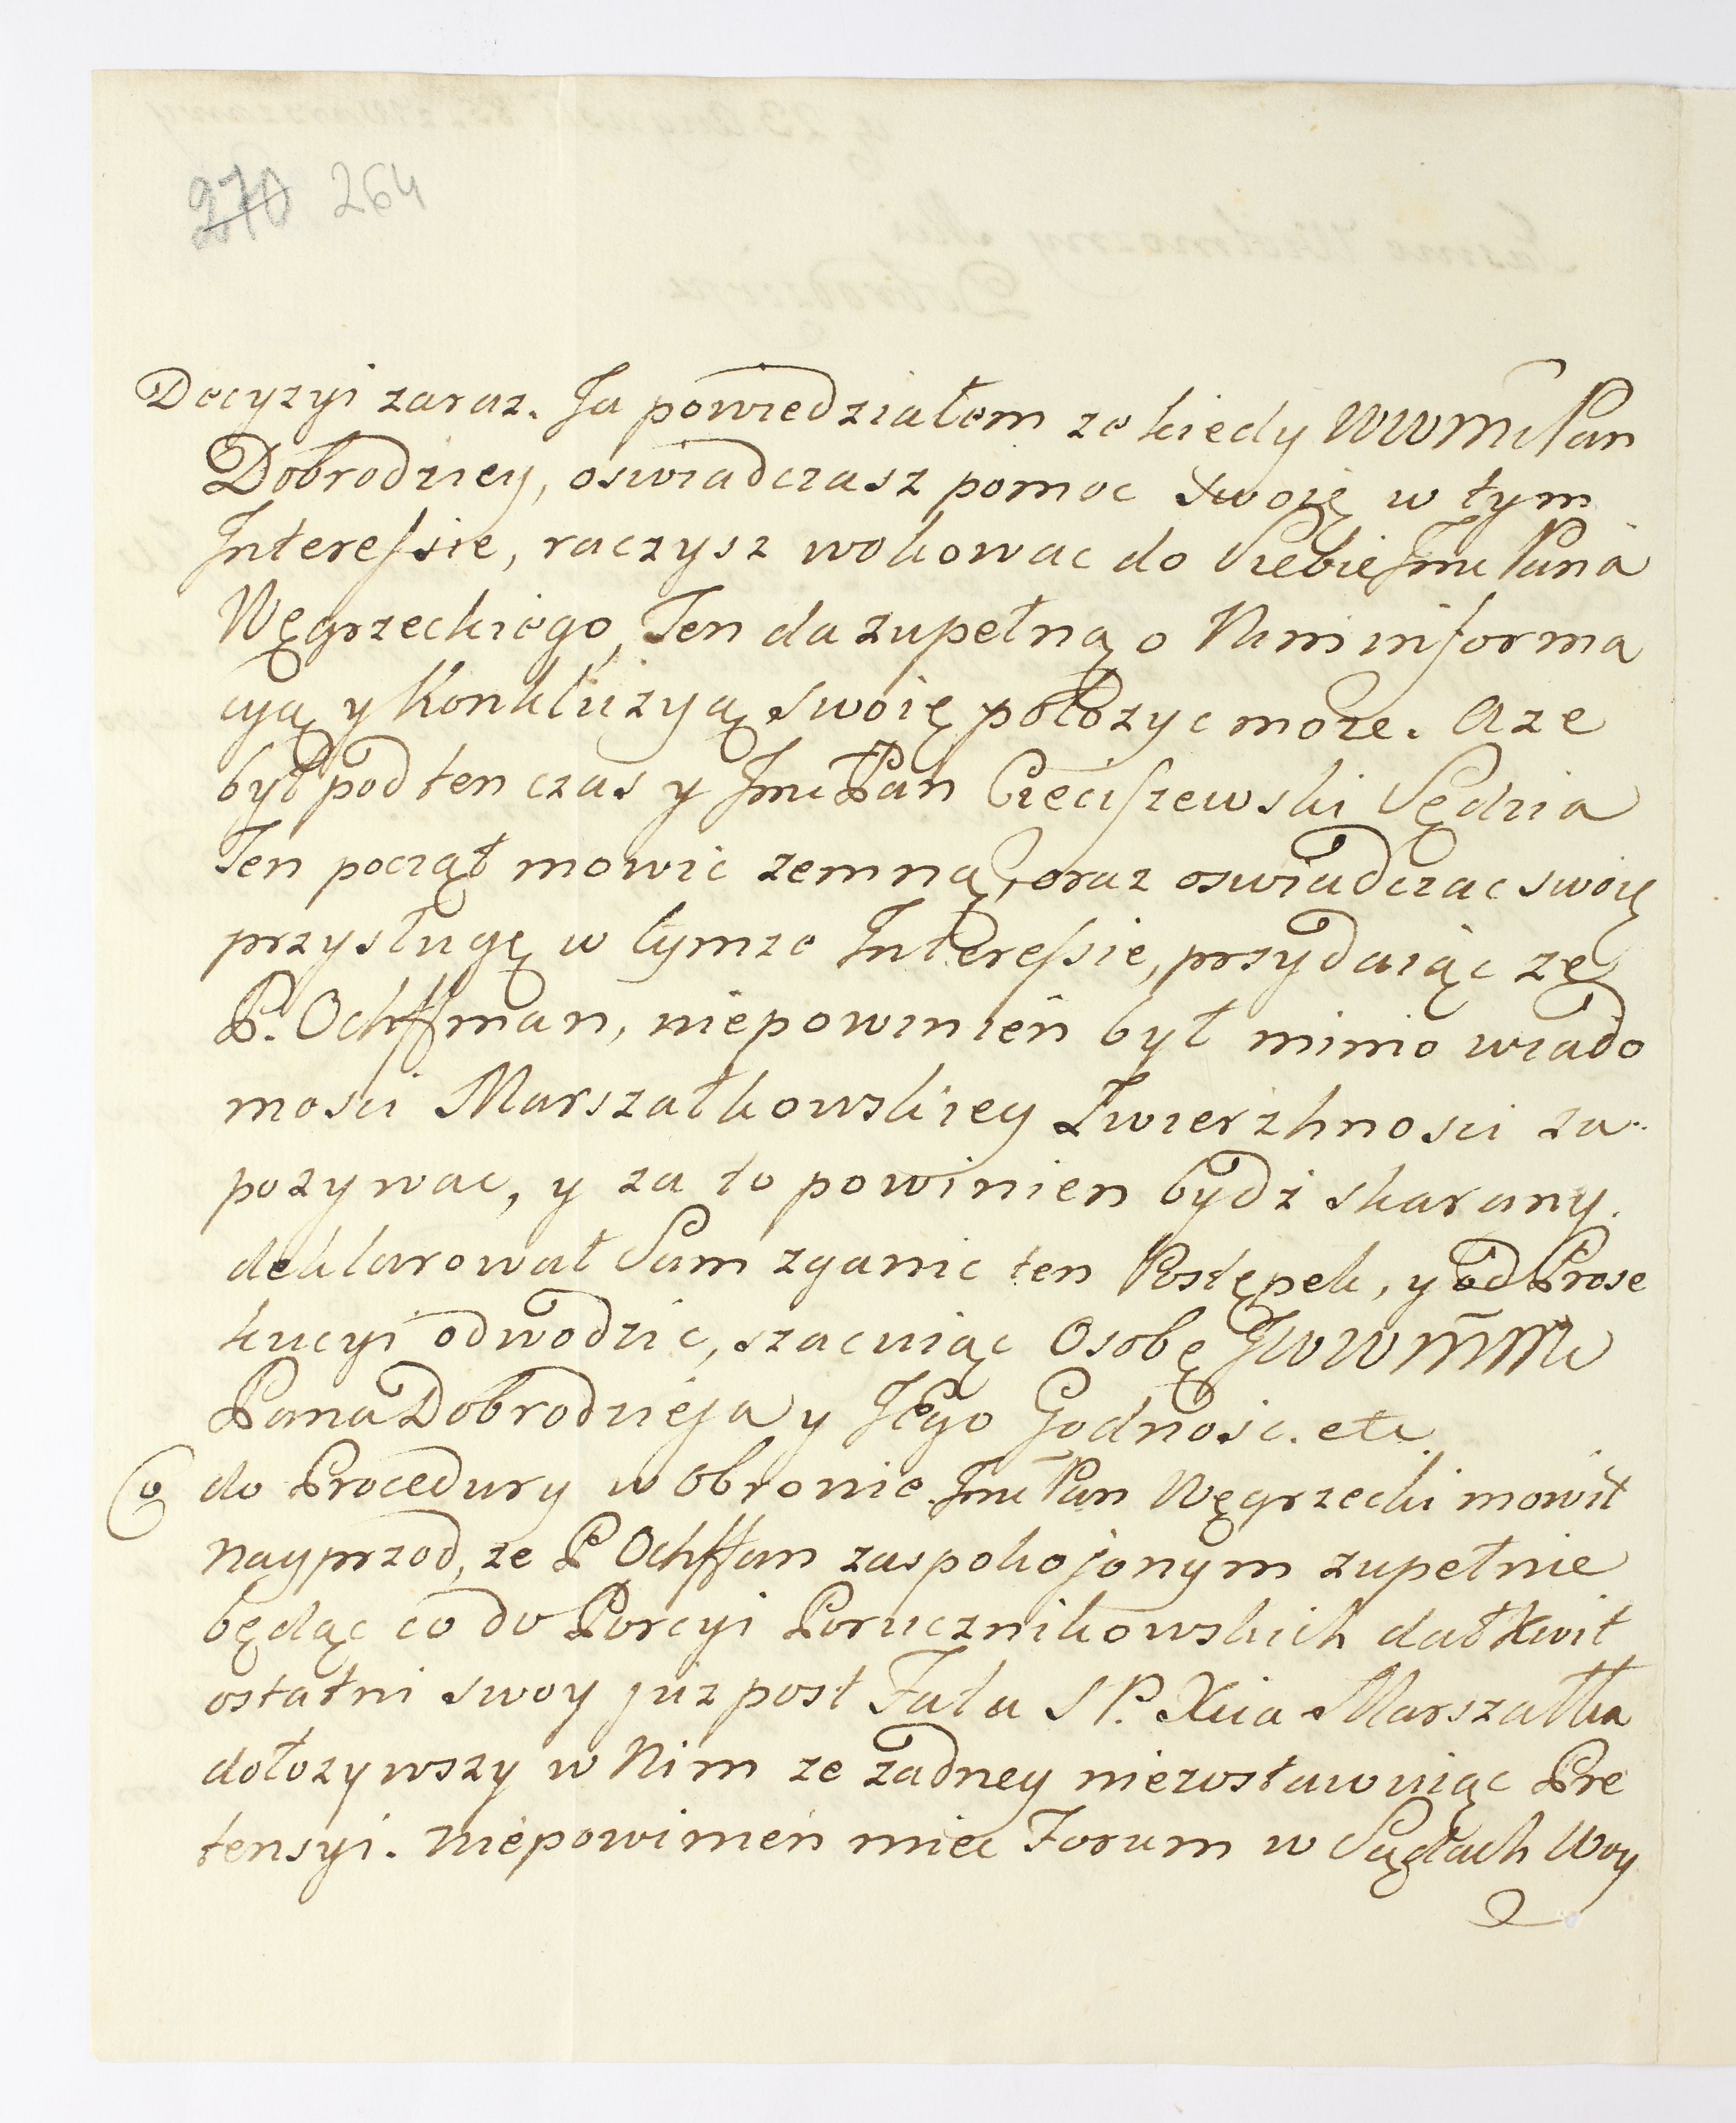 270 264
Decyzyi zaraz. Ja powiedziałem ze kiedy WWMc Pan
Dobrodziey, oswiadczasz pomoc swoię w tym
Interessie, raczysz wokowac do Siebie Jmc Pana
Węgrzeckiego, Ten da zupełną o Nim informa
cyą y Konkluzyą swoię położyc może. A ze
był pod ten czas y Jmc Pan Cieciszewski Sędzia
Ten począł mowic zemną, oraz oswiadczac swoię
przysługę w tymze Interessie, przydaiąc ze
P. Ochffman, niepowinien był mimo wiado
mosci Marszałkowskiey Zwierzhnosci za..
pozywac, y za to powinien bydz skarany.
deklarował Sam zganic ten Postępek, y od Prose
kucyi odwodzic, szacuiąc Osobę JWWMM
Pana Dobrodzieja y Jego Godnosc. etc.
Co do Procedury w Obronie Jmc Pan Węgrzecki mowił
nayprzod, ze P Ochffman zaspokojonym zupełnie
będąc co do Porcyi Porucznikowskich dał Kwit
ostatni swoy juz post Fata S P. Xcia Marszałka
dołozywszy w Nim ze zadney niezostawuiąc Pre
tensyi. niepowinien miec Forum w Sądach Woy